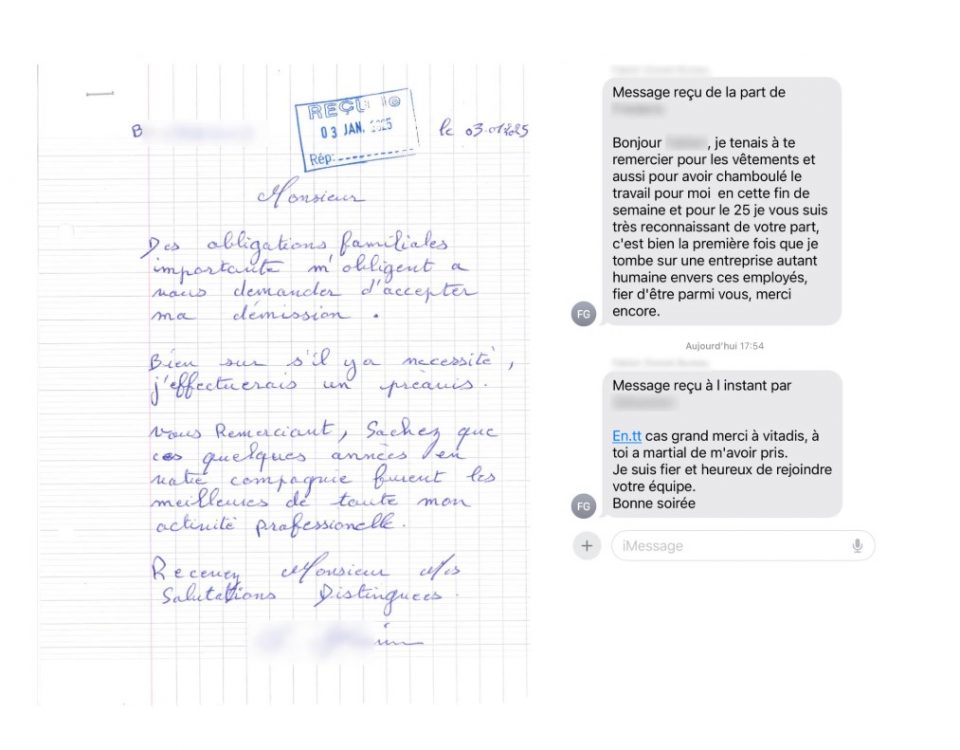 B
REÇU le
03 JAN. 2025
Rép:
le 03.01.2025
Monsieur
Des obligations familiales
importante m'obligent a
vous demander d'accepter
ma démission .
Bien sur s'il y a necessité,
j'effectuerais un préavis.
Vous Remerciant, Sachez que
ces quelques années en
votre compagnie furent les
meilleures de toute mon
activité professionelle.
Recevez Monsieur Mes
Salutations Distinguees.
Message reçu de la part de
Bonjour , je tenais à te
remercier pour les vêtements et
aussi pour avoir chamboulé le
travail pour moi en cette fin de
semaine et pour le 25 je vous suis
très reconnaissant de votre part,
c'est bien la première fois que je
tombe sur une entreprise autant
humaine envers ces employés,
fier d'être parmi vous, merci
encore.
FG
Aujourd'hui 17:54
Message reçu à l instant par
En.tt cas grand merci à vitadis, à
toi a martial de m'avoir pris.
Je suis fier et heureux de rejoindre
votre équipe.
Bonne soirée
FG
iMessage